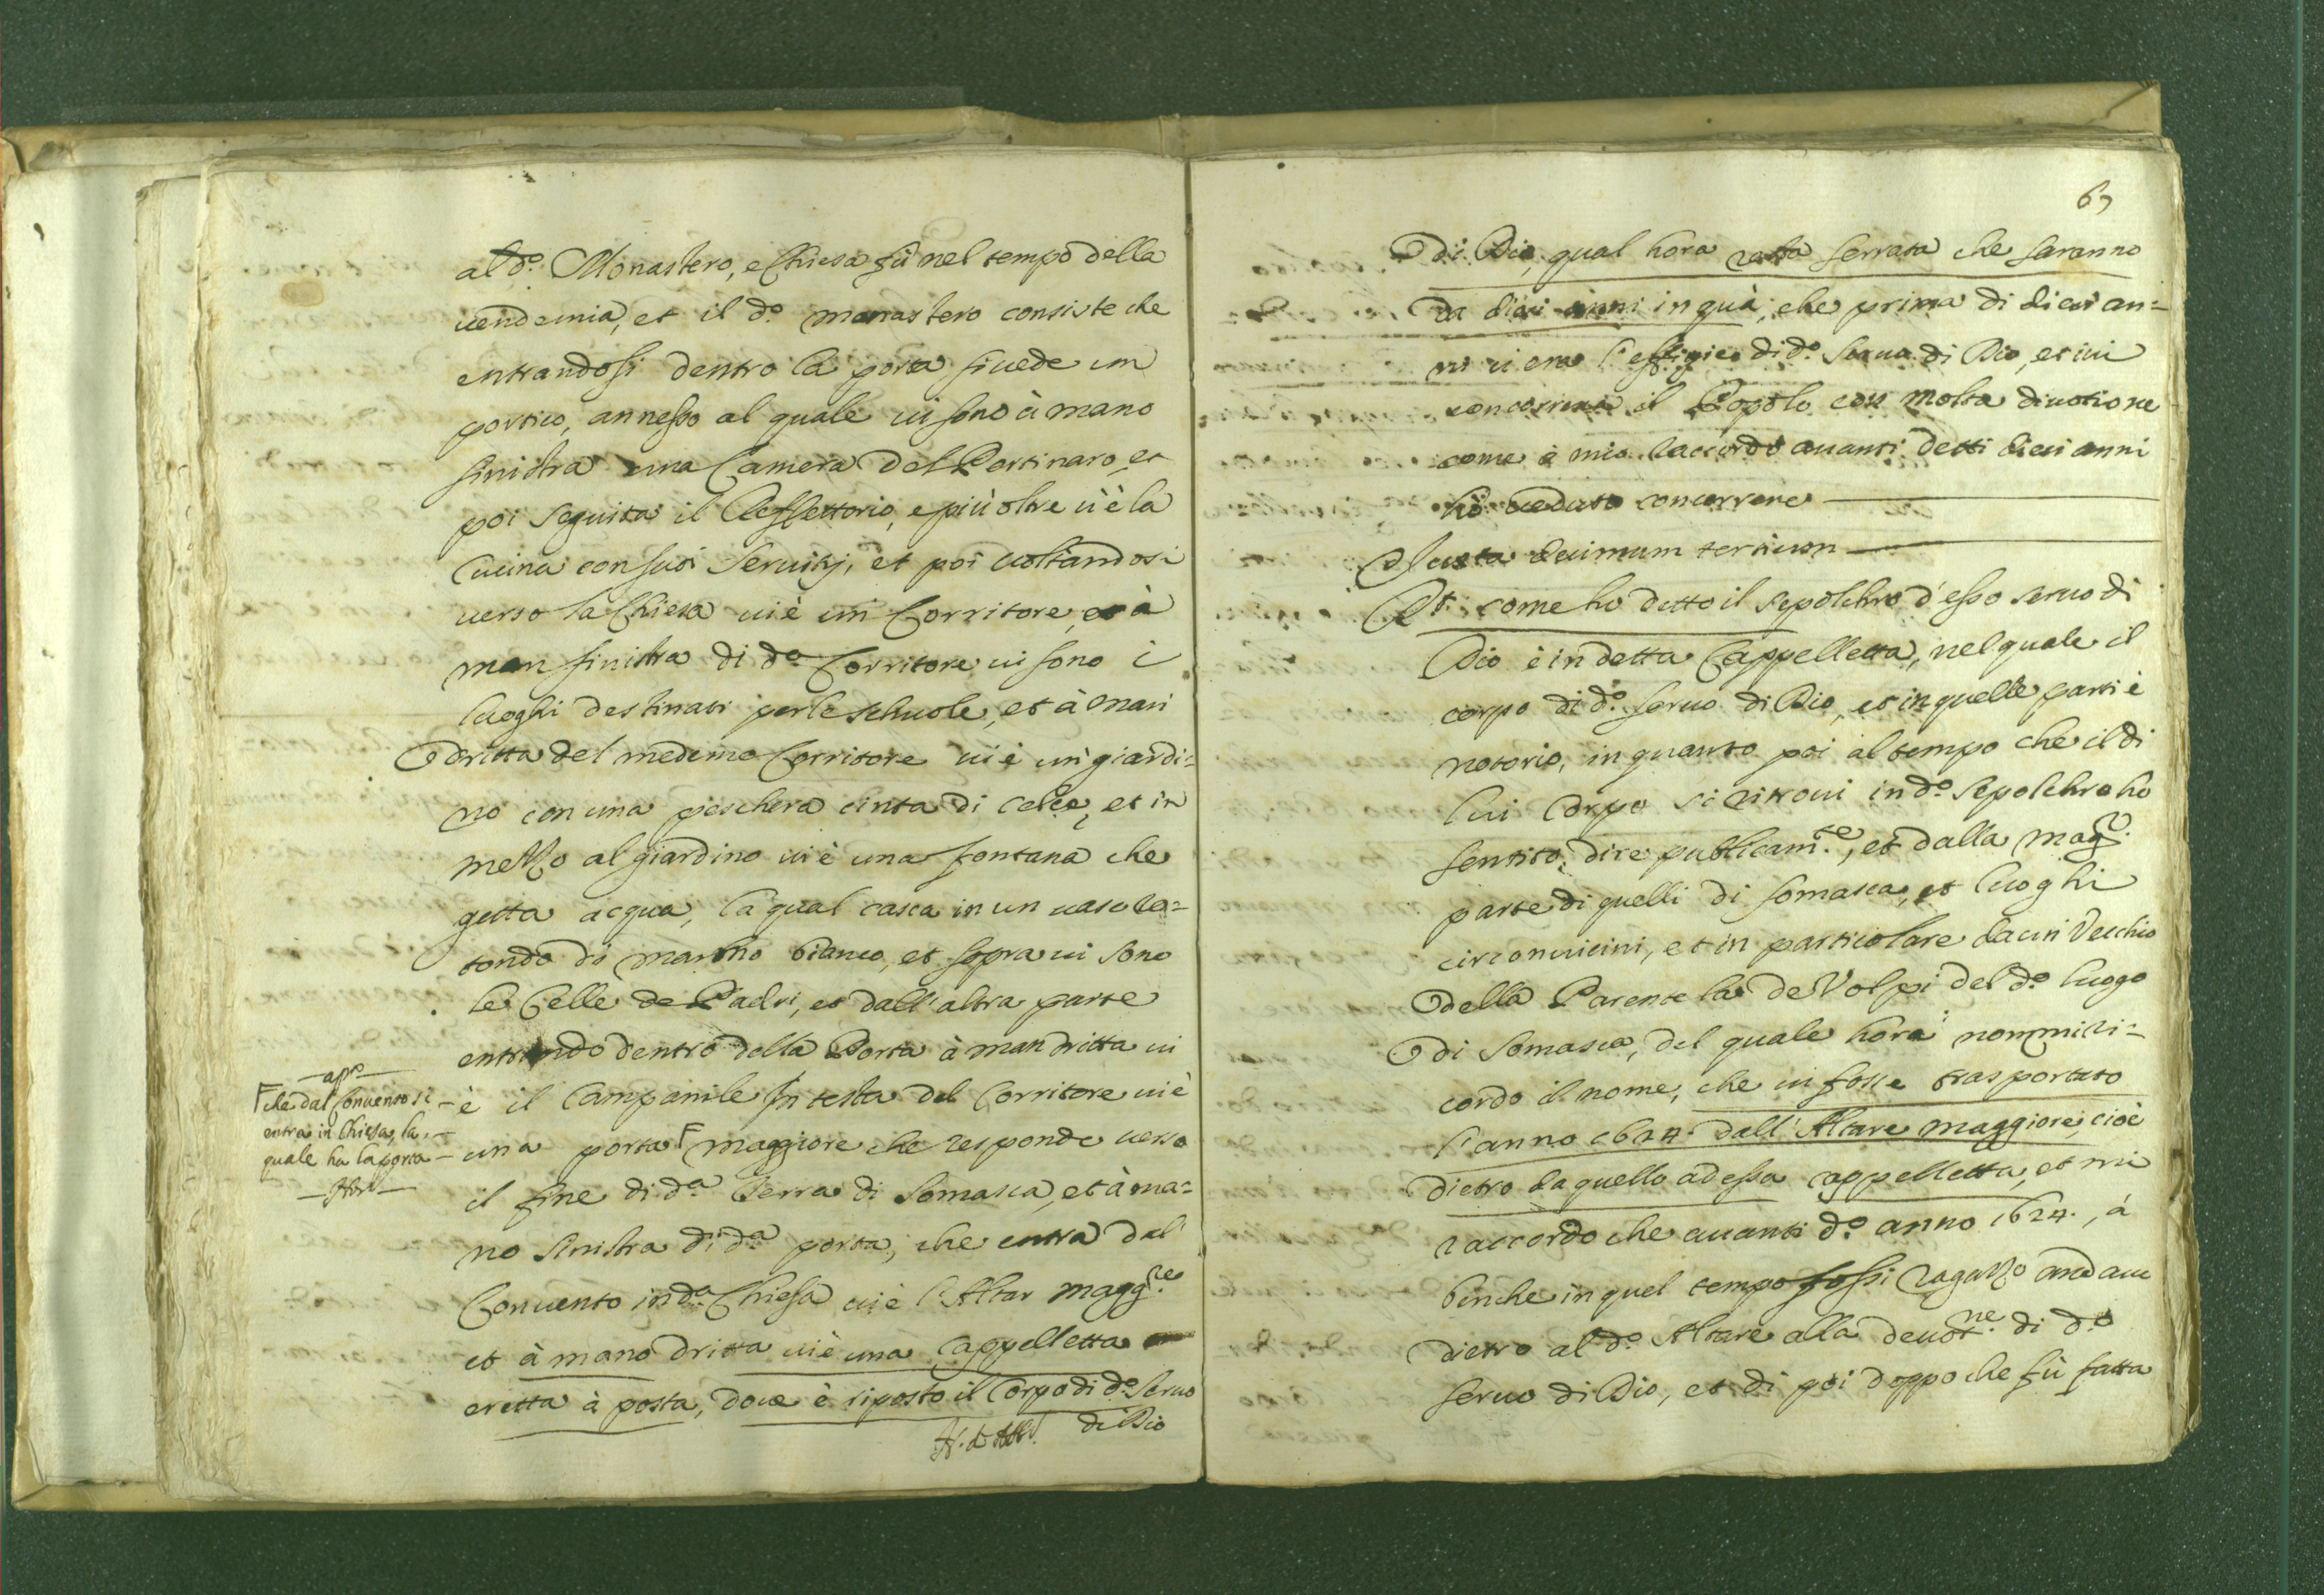 al d.º Monastero, e Chiesa fù nel tempo della
uendemia, et il d.º monastero consiste che
entrandosi dentro la porta si uede un
portico, annesso al quale ui sono à mano
sinistra una Camera del Portinaro, et
poi seguita il Reffettorio, e più oltre u'è la
Cucina con suoi seruitij, et poi uoltandosi
uerso la Chiesa ui è un Corritore, et à
man sinistra di d.º Corritore ui sono i
luoghi destinati per le schuole, et à man
dritta del medemo Corritore ui è un giardi=
no con una peschera cinta di , et in
mezzo al giardino ui è una fontana che
getta acqua, la qual casca in un uaso ro=
tondo di marmo bianco, et sopra ui sono
le Celle de Padri, et dall'altra parte
entrando dentro della Porta à man dritta ui
è il Campanile in testa del Corritore ui è
una porta maggiore che responde uerso
il fine di d.ª terra di Somasca, et à ma=
no sinistra di d.ª porta, che entra dal
Conuento in d.ª Chiesa ui è l'Altar magg.re
et à mano dritta ui è una Cappelletta
eretta à posta, doue è riposto il Corpo di d.º Seruo
di Dio
che dal Conuento si
entra in Chiesa, la
quale ha la porta
67
di Dio, qual hora resta serrata che saranno
da dieci anni in quà, che prima di dieci an=
ni ui era l'effigie di d.º Seruo di Dio, et iui
concorreua il Popolo con molta diuotione
come è mio raccordo auanti detti dieci anni
hò ueduto concorrere
Iuxta decimum tertium
R.t come ho detto il sepolchro d'esso seruo di
Dio è in detta Cappelletta, nel quale il
corpo di d.º seruo di Dio, et in quelle parti è
notorio, in quanto poi al tempo che il di
lui Corpo si ritroui in d.º sepolchro ho
sentito dire publicam.te, et dalla mag.r
parte di quelli di Somasca, et luoghi
circonuicini, et in particolare da un Vecchio
della Parentela de Volpi del d.º luogo
di Somasca, del quale hora non mi ri=
cordo il nome, che ui fosse trasportato
l'anno 1624. dall'Altare maggiore, cioè
dietro da quello ad essa cappelletta, et mi
raccordo che auanti d.º anno 1624., à
benche in quel tempo fossi ragazzo andaua
dietro al d.º Altare alla deuot.ne di d.º
seruo di Dio, et di poi doppo che fù fatta